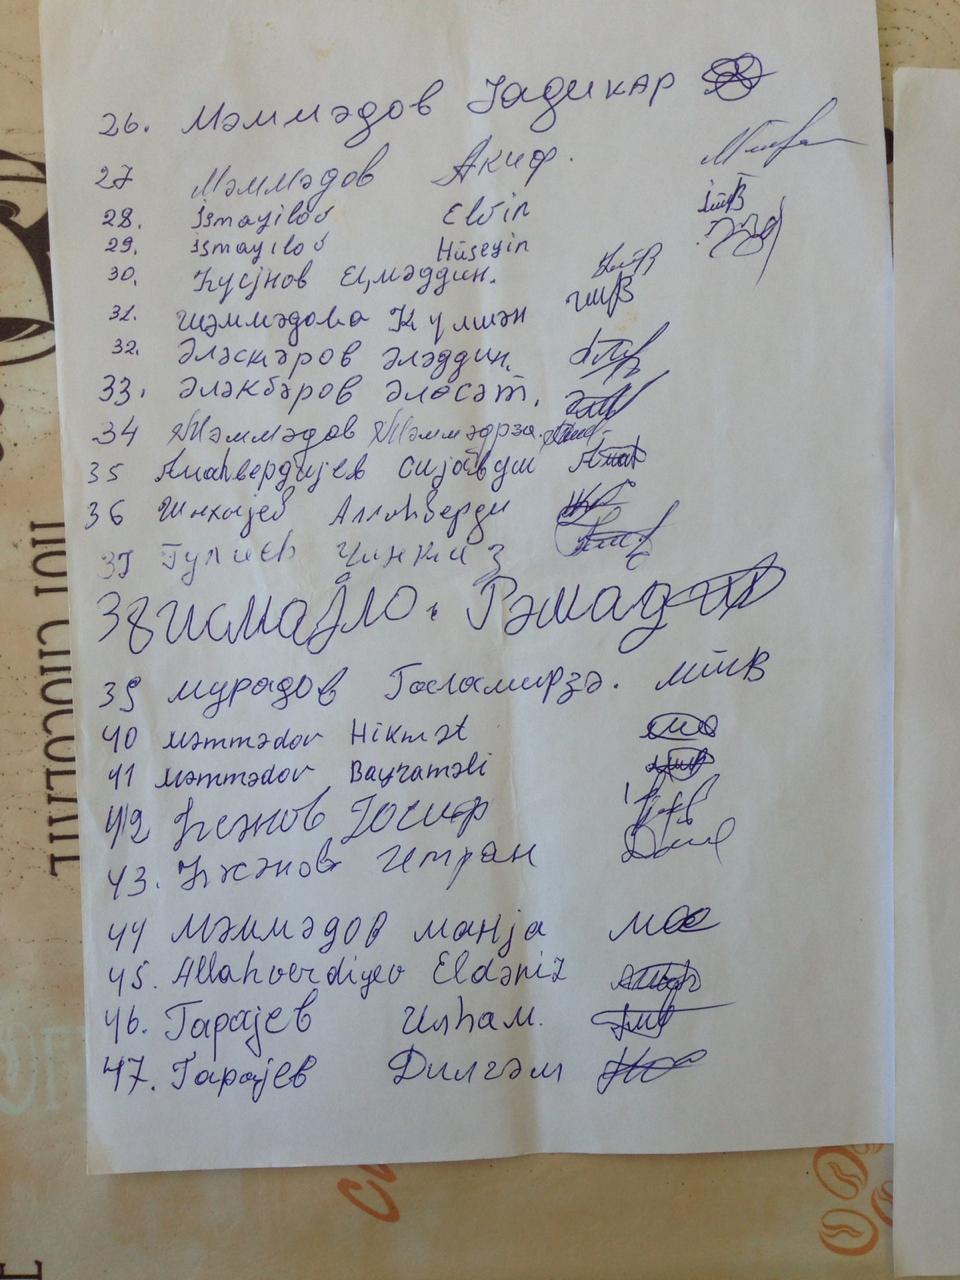 26. Мәммәдов Јадикар
27 Мәммәдов Акиф.
28. İsmayilov Elvin
29. İsmayılov Hüseyin
30. Һүсјнов Елмәддин.
31. Мәммәдова Күлшән
32. Әләскәров Әләддин.
33. Әләкбәров Әләсәт.
34 Мәммәдов Мәммәдрза.
35 Аллаһвердијев Сијавуш
36 Аллаһверди
37 Гулиев Чинкиз
38 Исмајло. Рәшад
39 Мурадов Гәламирзә.
40 Məmmədov Hikmət
41 Məmmədov Bayraməli
42 Јосиф
43.
44 Мәммәдов Манја
45. Allahverdiyev Eldəniz
46. Гарајев Илһам.
47. Гарајев Дилгәм
HOT CHOCOLATE